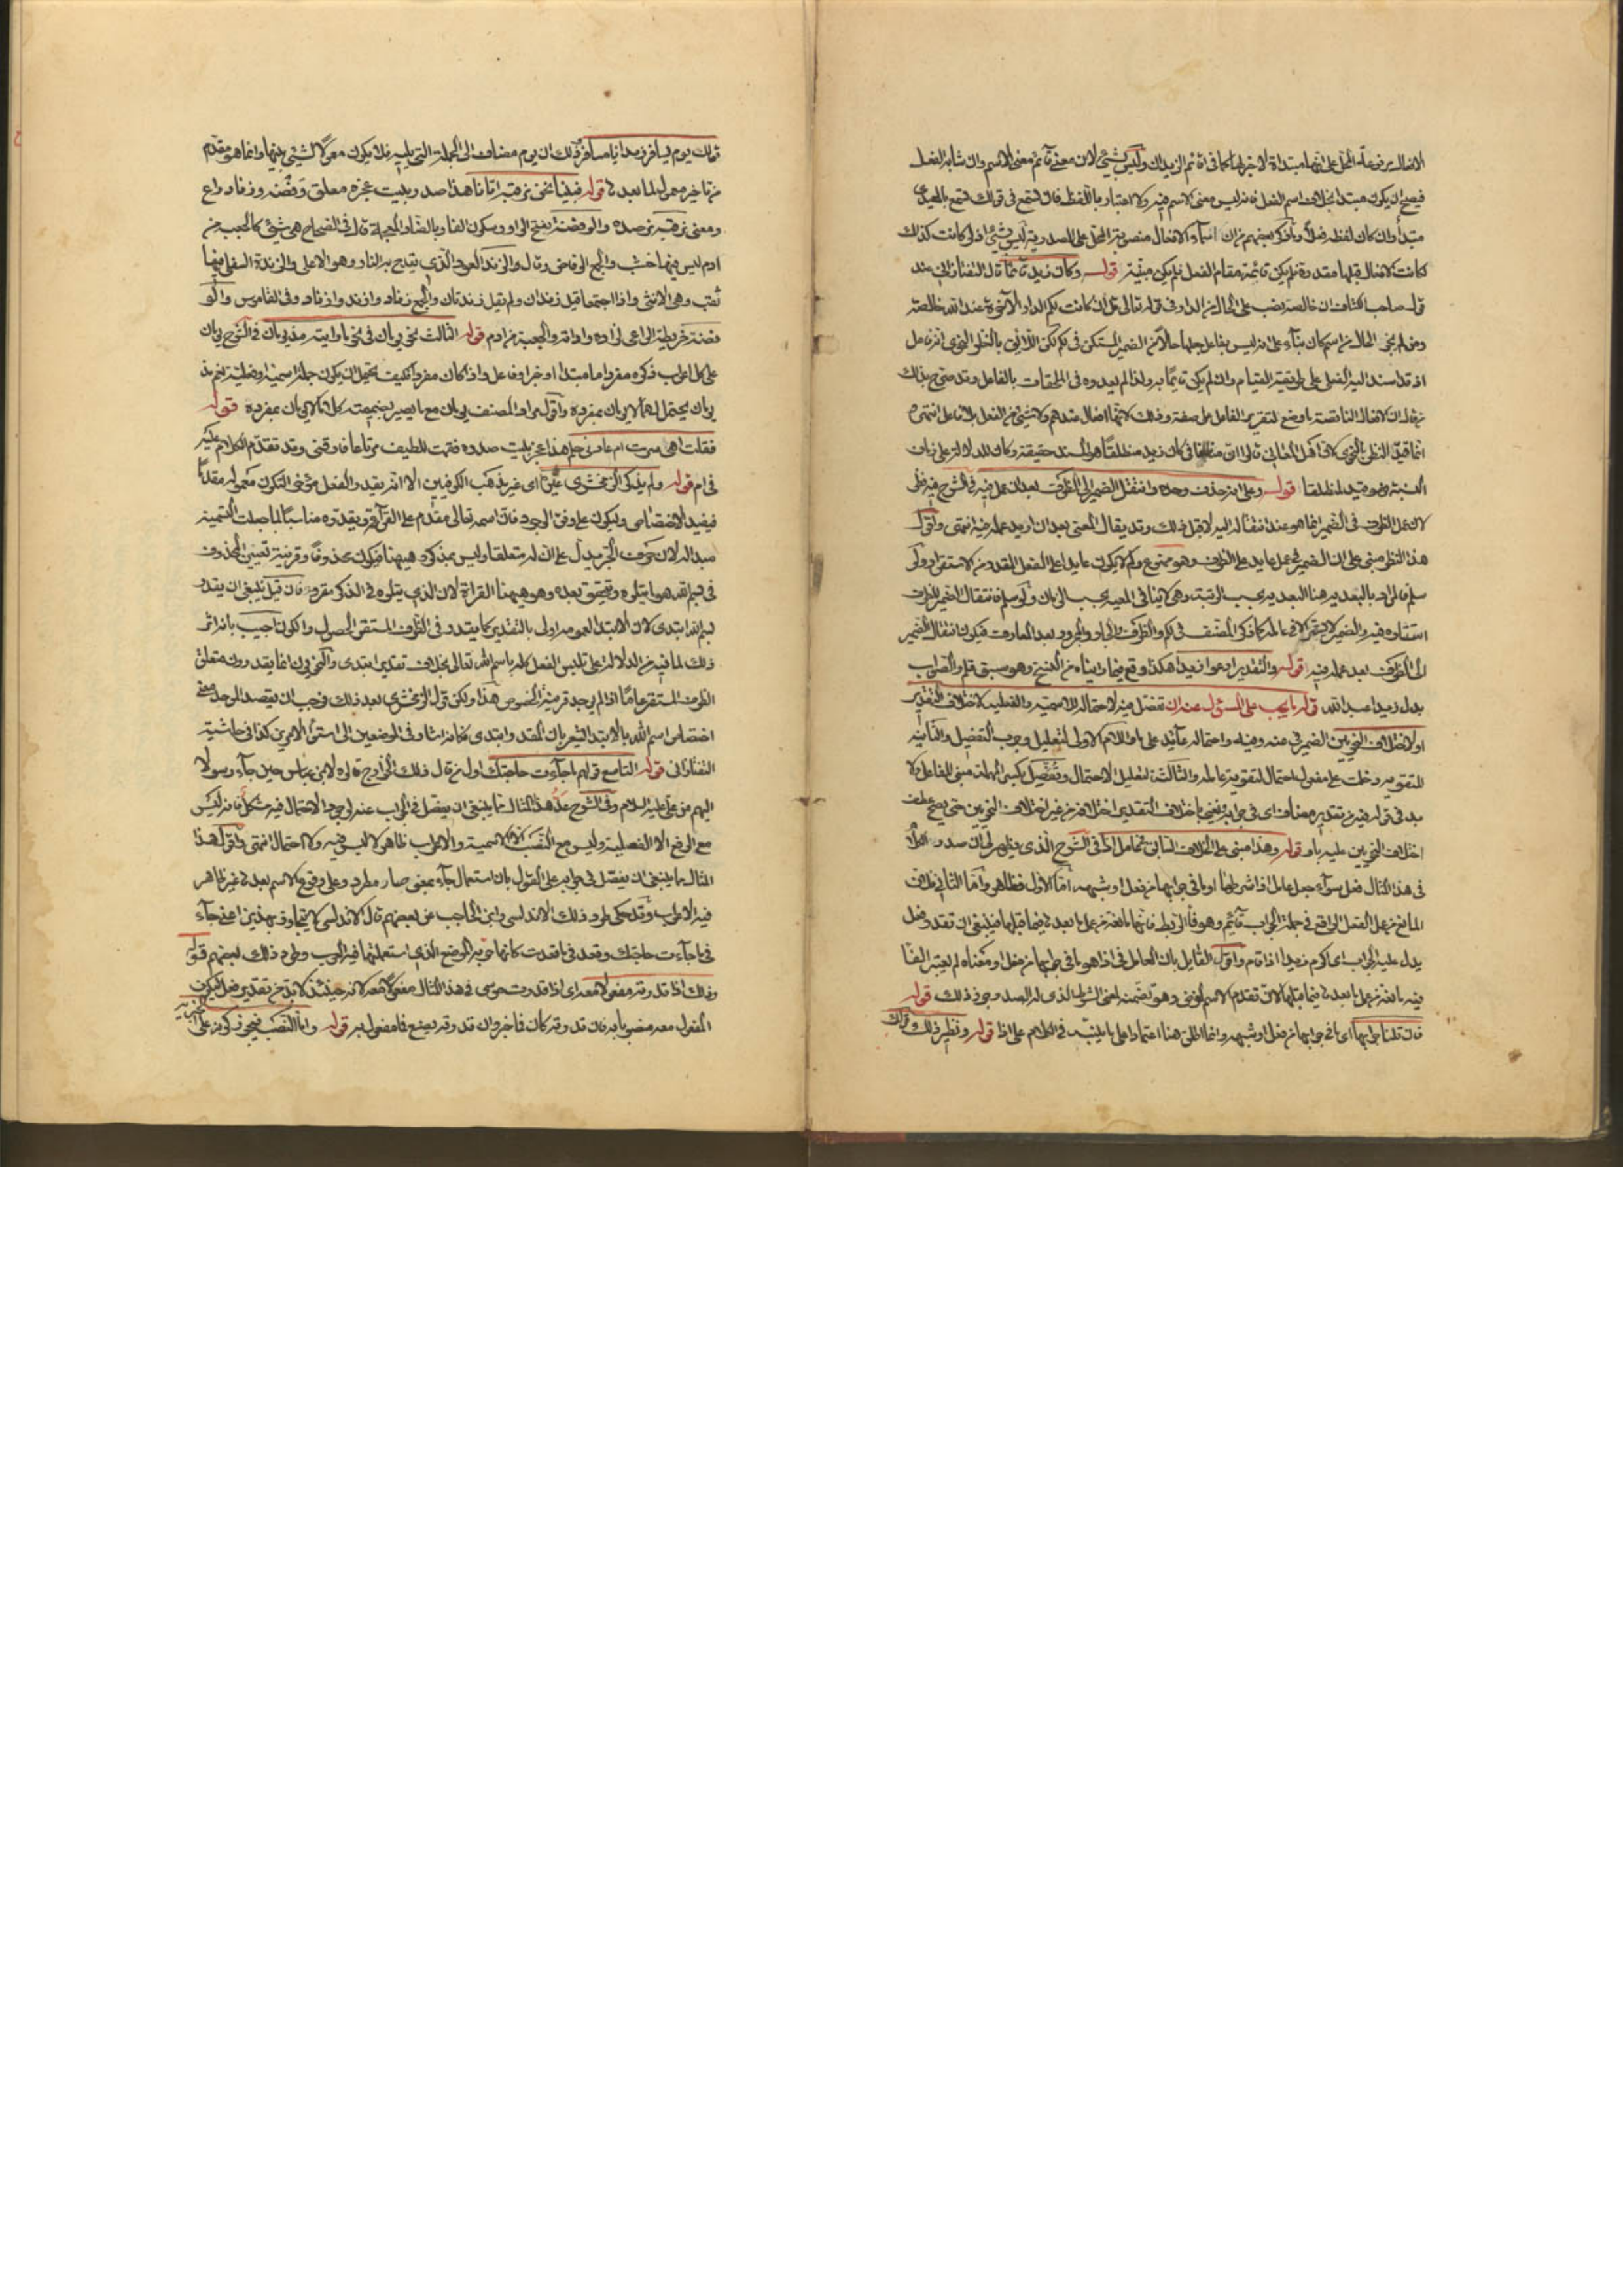 الافعال يرفع علة المحل على انها مبتدأة لا خبر لها كما في اقائم الزيدان وليس بشيء لان معنى قائم معنى الاسم وان شابه الفعل
فيصح ان يكون مبتدأ بخلاف اسم الفعل فانه ليس معنى الاسم فيه ولا اعتبار باللفظ فان تسمع في قولك تسمع بالمعيدي
مبتدأ وان كان لفظه فعلا وما ذكره بعضهم من ان اسماء الافعال منصوبة المحل على المصدرية ليس بشيء اذ لو كانت كذلك
كانت الافعال قبلها مقدرة فلم يكن قائمة مقام الفعل فلم يكن مبنية قوله وكان زيد قائما قال التفتازاني عند
قول صاحب الكشاف ان خالصة نصب على الحال من الدار في قوله تعالى قل ان كانت لكم الدار الآخرة عند الله خالصة
ومن لم يجوز الحال من اسم كان بناء على انه ليس بفاعل جعلها حالا من الضمير المستكن في لكم لكن اللائق بالنظر النحوي انه فاعل
اذ قد اسند اليه الفعل على طريقة القيام وان لم يكن قائما به ولذا لم يعدوه في الملحقات بالفاعل وقد صرح بذلك
من قال ان الافعال الناقصة ما وضع لتقرير الفاعل على صفة وذلك لانها افعال عندهم ولا شيء من الفعل بلا فاعل انتهى
انما قيد النظر بالنحوي لان اهل المعاني قالوا ان منطلقا في كان زيد منطلقا هو المسند حقيقة وكان للدلالة على زمان
النسبة وهو قيد لمنطلقا قوله وعلى انه حذف وحده وانتقل الضمير الى الظرف بعد ان عمل فيه في الشرح فيه نظر
لان عمل الظرف في الضمير انما هو عند انتقاله اليه لا قبل ذلك وقد يقال المعنى بعد ان اريد عمله فيه انتهى واقول
هذا النظر مبني على ان الضمير في عمل عايد على الظرف وهو ممنوع ولم لا يكون عايدا على الفعل المقدر من الاستقرار ولو
سلم فالمراد بالبعدية هنا البعدية بحسب الرتبة وهي لا ينافي المعية بحسب الزمان ولو سلم فانتقال الضمير للظرف
استتاره فيه والضمير لا يستتر الا في عامله كما ذكر المصنف في لكم والظرف والجار والمجرور بعد المعارف فيكون انتقال الضمير
الى الظرف بعد عمله فيه قوله والتقدير ادعوا زيدا هكذا وقع فيما رايناه من النسخ وهو سبق قلم والصواب
بدل زيدا عبد الله قوله ما يجب على المسئول عنه ان تفصل فيه لاحتماله للاسمية والفعلية لاختلاف التقدير
او لاختلاف النحويين الضمير في عنه وفيه واحتماله عائد على ما واللام الاولى لتعليل وجوب التفصيل والثانية
للتقوية دخلت على مفعول احتمال لتقوية عامله والثالثة لتعليل الاحتمال وتفصل بكسر المهملة مبني للفاعل ولا
بد في قوله فيه من تقدير مضاف اي في جوابه ويعني باختلاف التقدير اختلافه من غير اختلاف النحويين حتى يصح عطف
اختلاف النحويين عليه باو قوله وهذا مبني على الخلاف السابق في عامل اذا في الشرح الذي يظهر لي ان صدر الكلام
في هذا المثال فعل سواء جعل عامل اذا شرطها او ما في جوابها من فعل او شبهه اما الاول فظاهر واما الثاني فلان
المانع من عمل الفعل الواقع في جملة الجواب قائم وهو فاء الربط فانها مانعة من عمل ما بعدها فيما قبلها فينبغي ان تقدر فعل
يدل عليه الجواب اي اكرم زيدا اذا قام واقول القائل بان العامل في اذا هو ما في جوابها من فعل او معناه لم يعتبر الفاء
فيه مانعة من عمل ما بعدها فيما قبلها لان تقدم الاسم لغرض وهو تضمنه لمعنى الشرط الذي له الصدر جوز ذلك قوله
فان قلنا جوابها اي ما في جوابها من فعل او شبهه وانما اطلق هنا اعتمادا على ما بينه في الكلام على اذا قوله ونظير ذلك
قولك
قولك يوم يسافر زيد انا مسافر ذلك ان يوم مضاف الى الجملة التي يليه فلا يكون معمولا لشيء منها وانما هو مقدم
من تاخير معمول لما بعدها قوله فبينا نحن نرقبه اتانا هذا صدر بيت عجزه معلق وفضة وزناد راع
ومعنى نرقبه نرصده والوفضة بفتح الواو وسكون الفاء وبالضاد المعجمة قال في الصحاح هي شيء كالجعبة من
ادم ليس فيها خشب والجمع الوفاض وقال والزند العود الذي يقدح به النار وهو الاعلى والزندة السفلى فيها
ثقب وهي الانثى واذا اجتمعا قيل زندان ولم يقل زندتان والجمع زناد وازند وازناد وفي القاموس والو
فضة خريطة الراعي لزاده واداته والجعبة من ادم قوله الثالث نحو يومان في نحو ما رايته مذ يومان في الشرح يومان
على كل اعراب ذكره مفرد اما مبتدا او خبر او فاعل واذا كان مفردا فكيف يحتمل ان يكون جملة اسمية او فعلية نعم مذ
يومان يحتمل لهما لا يومان بمفرده واقول مراد المصنف يومان مع ما يصير بضميمته كلاما لا يومان بمفرده قوله
فقلت اهي سرت ام عادني حلم هذا عجز بيت صدره فقمت للطيف مرتاعا فارقني وقد تقدم الكلام عليه
في ام قوله ولم يذكر الزمخشري غيره اي غير مذهب الكوفيين الا انه يقدر الفعل مؤخرا لتكون معموله مقدما
فيفيد الاختصاص ويكون على وفق الوجود فان اسمه تعالى مقدم على القراءة ويقدره مناسبا لما جعلت التسمية
مبدأ له لان حرف الجر يدل على ان له متعلقا وليس بمذكور هيهنا فيكون محذوفا وقرينة تعيين المحذوف
في بسم الله هو ما يتلوه ويتحقق بعده وهو هيهنا القراءة لان الذي يتلوه في الذكر مقرو فان قيل ينبغي ان يقدر
بسم الله ابتدى لان الابتداء لعمومه اولى بالتقدير كما يقدر في الظرف المستقر الحصول والكون اجيب بانه اثر
ذلك لما فيه من الدلالة على تلبس الفعل كله باسم الله تعالى بخلاف تقدير ابتدى والنحويون انما يقدرون متعلق
الظرف المستقر عاما اذا لم يوجد قرينة الخصوص هذا ولكن قول الزمخشري بعد ذلك فوجب ان يقصد الموحد معنى
اختصاص اسم الله بالابتداء يشعر بان المقدر ابتدى فكانه اشار في الموضعين الى استواء الامرين كذا في حاشية
التفتازاني قوله التاسع قولهم ما جاءت حاجتك اول من قال ذلك الخوارج قالوه لابن عباس حين جاء رسولا
اليهم من علي عليه السلام وفي الشرح عد هذا المثال مما ينبغي ان يفصل في الجواب عنه لوجود الاحتمال فيه مشكل فانه ليس
مع الرفع الا الفعلية وليس مع النصب الا الاسمية والاعراب ظاهر لا لبس فيه ولا احتمال انتهى واقول هذا
المثال مما ينبغي ان يفصل في جوابه على القول بان استعمال جاء بمعنى صار مطرد وعلى وقوع الاسم بعدها غير ظاهر
فيه الاعراب وقد حكى طرد ذلك الاندلسي وابن الحاجب عن بعضهم قال الاندلسي لا يتجاوز بهذين اعني جاء
في ما جاءت حاجتك وقعد في ما قعدت كانها حربة الموضع الذي استعملتهما فيه العرب وطرد ذلك بعضهم قوله
وذلك اذا قدرته مفعولا معه اي اذا قدرت موسى في هذا المثال مفعولا معه لانه حينئذ لا بد من تقدير فعل ليكون
المفعول معه منصوبا به فان قدرته كان فاخبر وان قدرته يصنع فامفعول به قوله واما النصب فيجوز كونه على